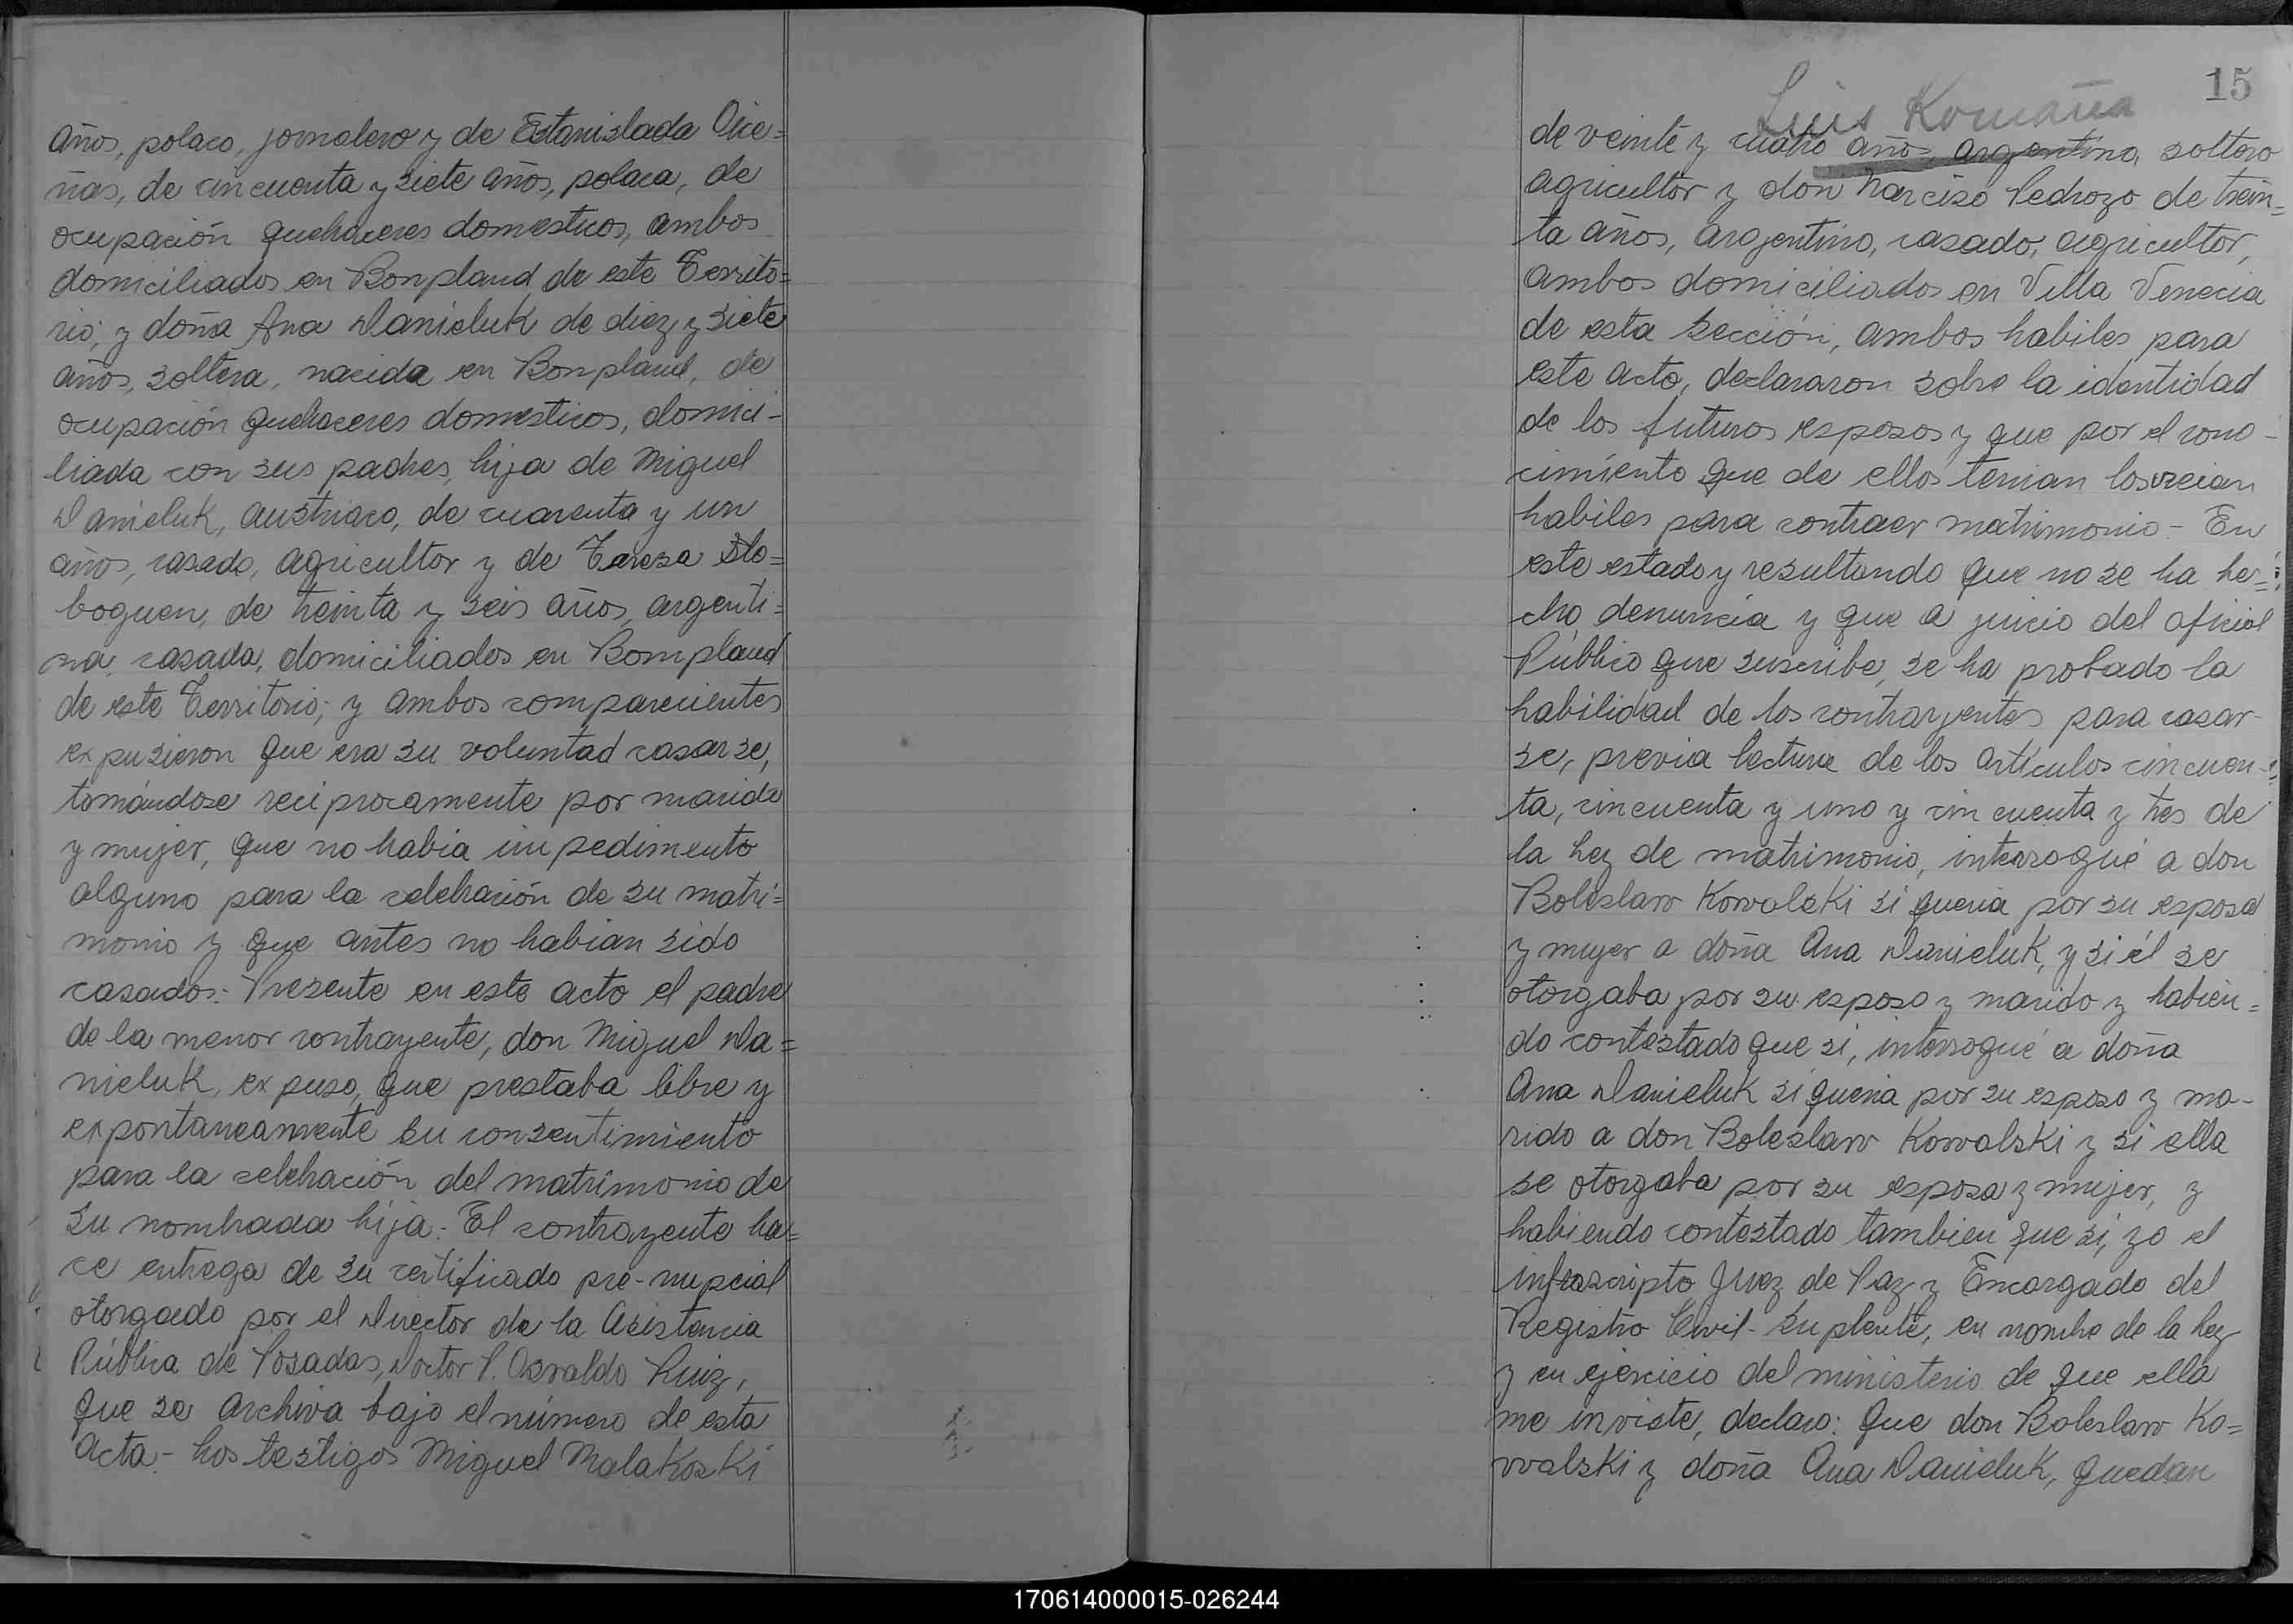 años, polaco, jornalero y de Estanislada Oice=
ñas, de cincuenta y siete años, polaca, de
ocupación quehaceres domesticos, ambos
domiciliados en Bonpland de este Territo=
rio; y doña Ana Danieluk de diez y siete
años, soltera, nacida en Bonpland, de
ocupación quehaceres domesticos, domici-
liada con sus padres, hija de Miguel
Danieluk, austriaco, de cuarenta y un
años, casado, agricultor y de Teresa Slo=
boguen, de treinta y seis años, argenti=
na, casada, domiciliados en Bompland
de este Territorio; y ambos comparecientes
expusieron que era su voluntad casarse,
tomándose reciprocamente por marido
y mujer, que no habia impedimento
alguno para la celebración de su matri=
monio y que antes no habian sido
casados.- Presente en este acto el padre
de la menor contrayente, don Miguel Da=
nieluk, expuso, que prestaba libre y
expontaneamente su consentimiento
para la celebración del matrimonio de
su nombrada hija.- El contrayente ha=
ce entrega de su certificado pre-nupcial
otorgado por el Director de la Asistencia
Pública de Posadas, Doctor P. Osvaldo Ruiz,
que se archiva bajo el número de esta
acta.- Los testigos Miguel Malakoski
15
Luis Romaña
de veinte y cuatro años, argentino, soltero
agricultor y don Narciso Pedrozo de trein=
ta años, argentino, casado, agricultor,
ambos domiciliados en Villa Venecia
de esta sección, ambos habiles para
este acto, declararon sobre la identidad
de los futuros esposos y que por el cono-
cimiento que de ellos tenian los creian
habiles para contraer matrimonio.- En
este estado y resultando que no se ha he=
cho denuncia y que a juicio del oficial
Público que suscribe, se ha probado la
habilidad de los contrayentes para casar-
se, previa lectura de los artículos cincuen-
ta, cincuenta y uno y cincuenta y tres de
la Ley de matrimonio, interrogué a don
Boleslaw Kowalski si queria por su esposa
y mujer a doña Ana Danieluk, y si él se
otorgaba por su esposo y marido y habien=
do contestado que si, interrogué a doña
Ana Danieluk si queria por su esposo y ma-
rido a don Boleslaw Kowalski y si ella
se otorgaba por su esposa y mujer, y
habiendo contestado tambien que si, yo el
infrascripto Juez de Paz y Encargado del
Registro Civil- Suplente, en nombre de la Ley
y en ejercicio del ministerio de que ella
me inviste, declaro: Que don Boleslaw Ko=
walski y doña Ana Danieluk, quedan
170614000015-026244